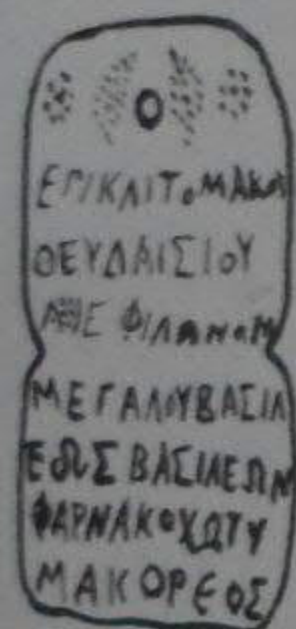 ΕΠΙΚΛΙΤΟΜΑΚΟΥ
ΘΕΥΔΑΙΣΙΟΥ
ΦΙΛΑΝΟΜ
ΜΕΓΑΛΟΥΒΑΣΙΛ
ΕΩΣ ΒΑΣΙΛΕΩΝ
ΦΑΡΝΑΚΟΥ
ΜΑΚΟΡΕΟΣ